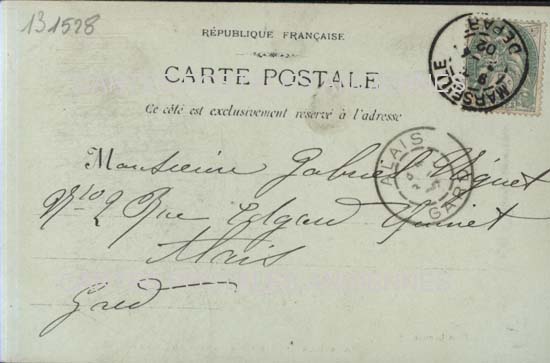 131528
RÉPUBLIQUE FRANÇAISE
CARTE POSTALE
Ce côté est exclusivement réservé à l'adresse
MARSEILLE
DEPART
02
ALAIS
GARD
Monsieur Gabriel
No 2 Rue Edgard Quinet
Alais
Gard